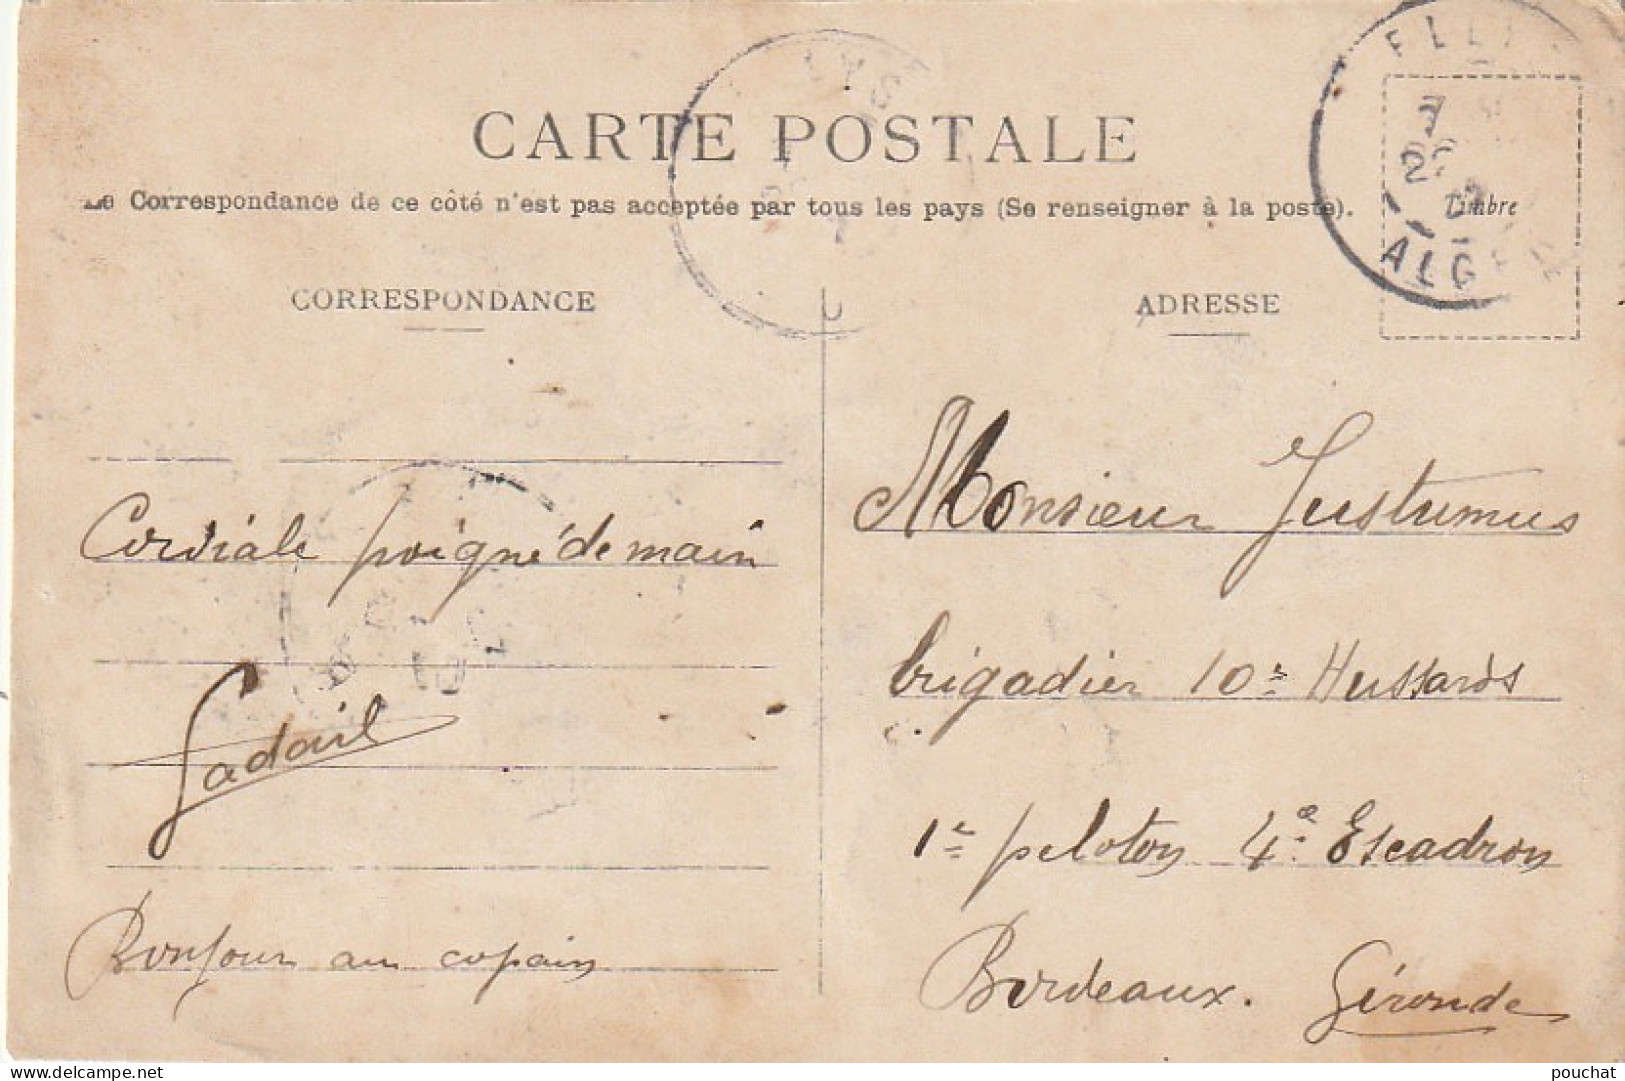 CARTE POSTALE
La Correspondance de ce côté n'est pas acceptée par tous les pays (Se renseigner à la poste).
Timbre
ALGERIE
CORRESPONDANCE
Cordiale poigné de main
Sadail
Bonjour au copain
ADRESSE
Monsieur Justumus
brigadier 10e Hussards
1er peloton 4e Escadron
Bordeaux. Gironde
pouchat